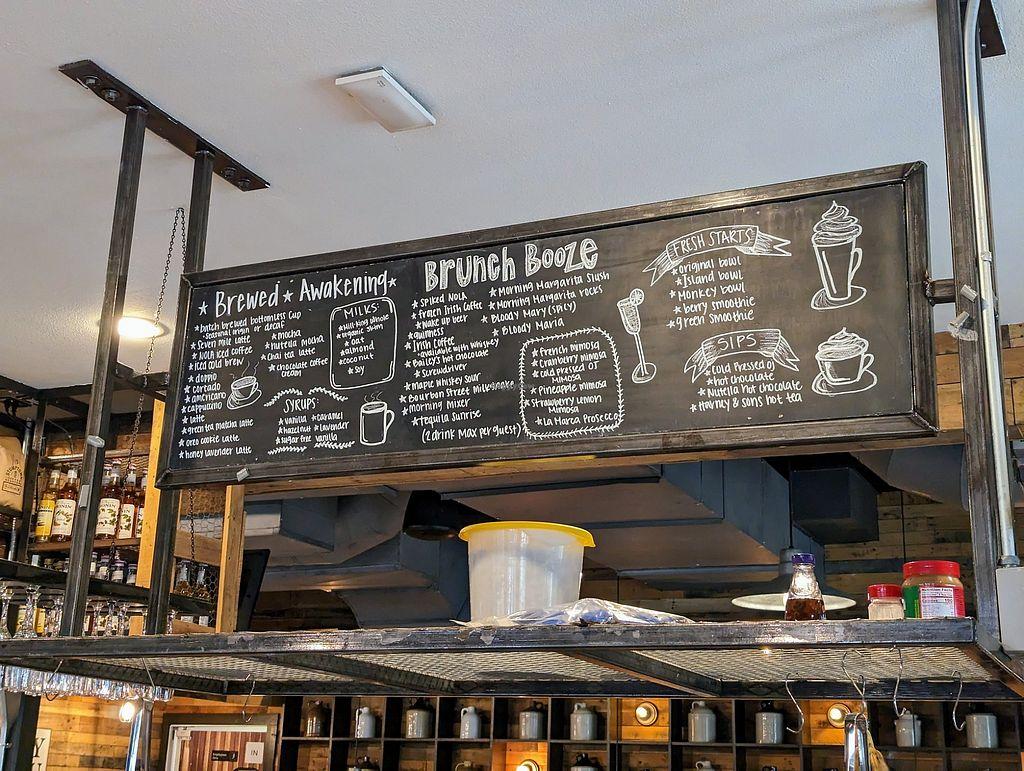 ★ Brewed ★ Awakening ★
★ batch brewed bottomless cup
- seasonal, origin or decaf
★ seven mile latte
★ NOLA iced coffee
★ iced cold brew
★ doppio
★ cortado
★ americano
★ cappuccino
★ latte
★ green tea matcha latte
★ oreo cookie latte
★ honey lavender latte
★ mocha
★ nutella mocha
★ chai tea latte
★ chocolate coffee
cream
MILKS:
★ organic skim
★ oat
★ almond
★ coconut
★ soy
SYRUPS:
★ vanilla ★ caramel
★ hazelnut ★ lavender
★ sugar free vanilla
Brunch Booze
★ Spiked NOLA
★ Frozen Irish Coffee
★ Wake up beer
★ guinness
★ Irish Coffee
- available with whiskey
★ Bailey's hot chocolate
★ Screwdriver
★ maple whiskey sour
★ Bourbon Street Milkshake
★ morning mixer
★ tequila Sunrise
(2 drink Max per guest)
★ Morning Margarita Slush
★ Morning Margarita rocks
★ Bloody Mary (spicy)
★ Bloody Maria
★ French mimosa
★ Cranberry mimosa
★ cold pressed OJ
Mimosa
★ Pineapple mimosa
★ Strawberry Lemon
Mimosa
★ La Marca Prosecco
FRESH STARTS
★ original bowl
★ Island bowl
★ Monkey bowl
★ berry smoothie
★ green smoothie
SIPS
★ Cold Pressed OJ
★ hot chocolate
★ Nutella hot chocolate
★ Harney & sons hot tea
MONIN
IN